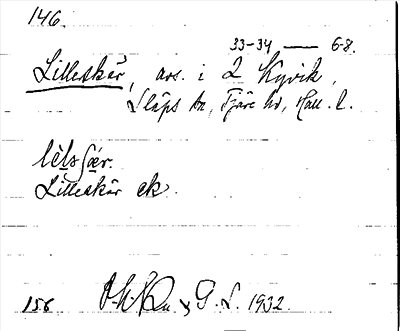 146.
33-34 — 68.
Lilleskär, avs. i 2 Kyvik,
Släps sn, Fjäre hd, Hall. l.
Lilleskär ek.
156 G. L. 1932.